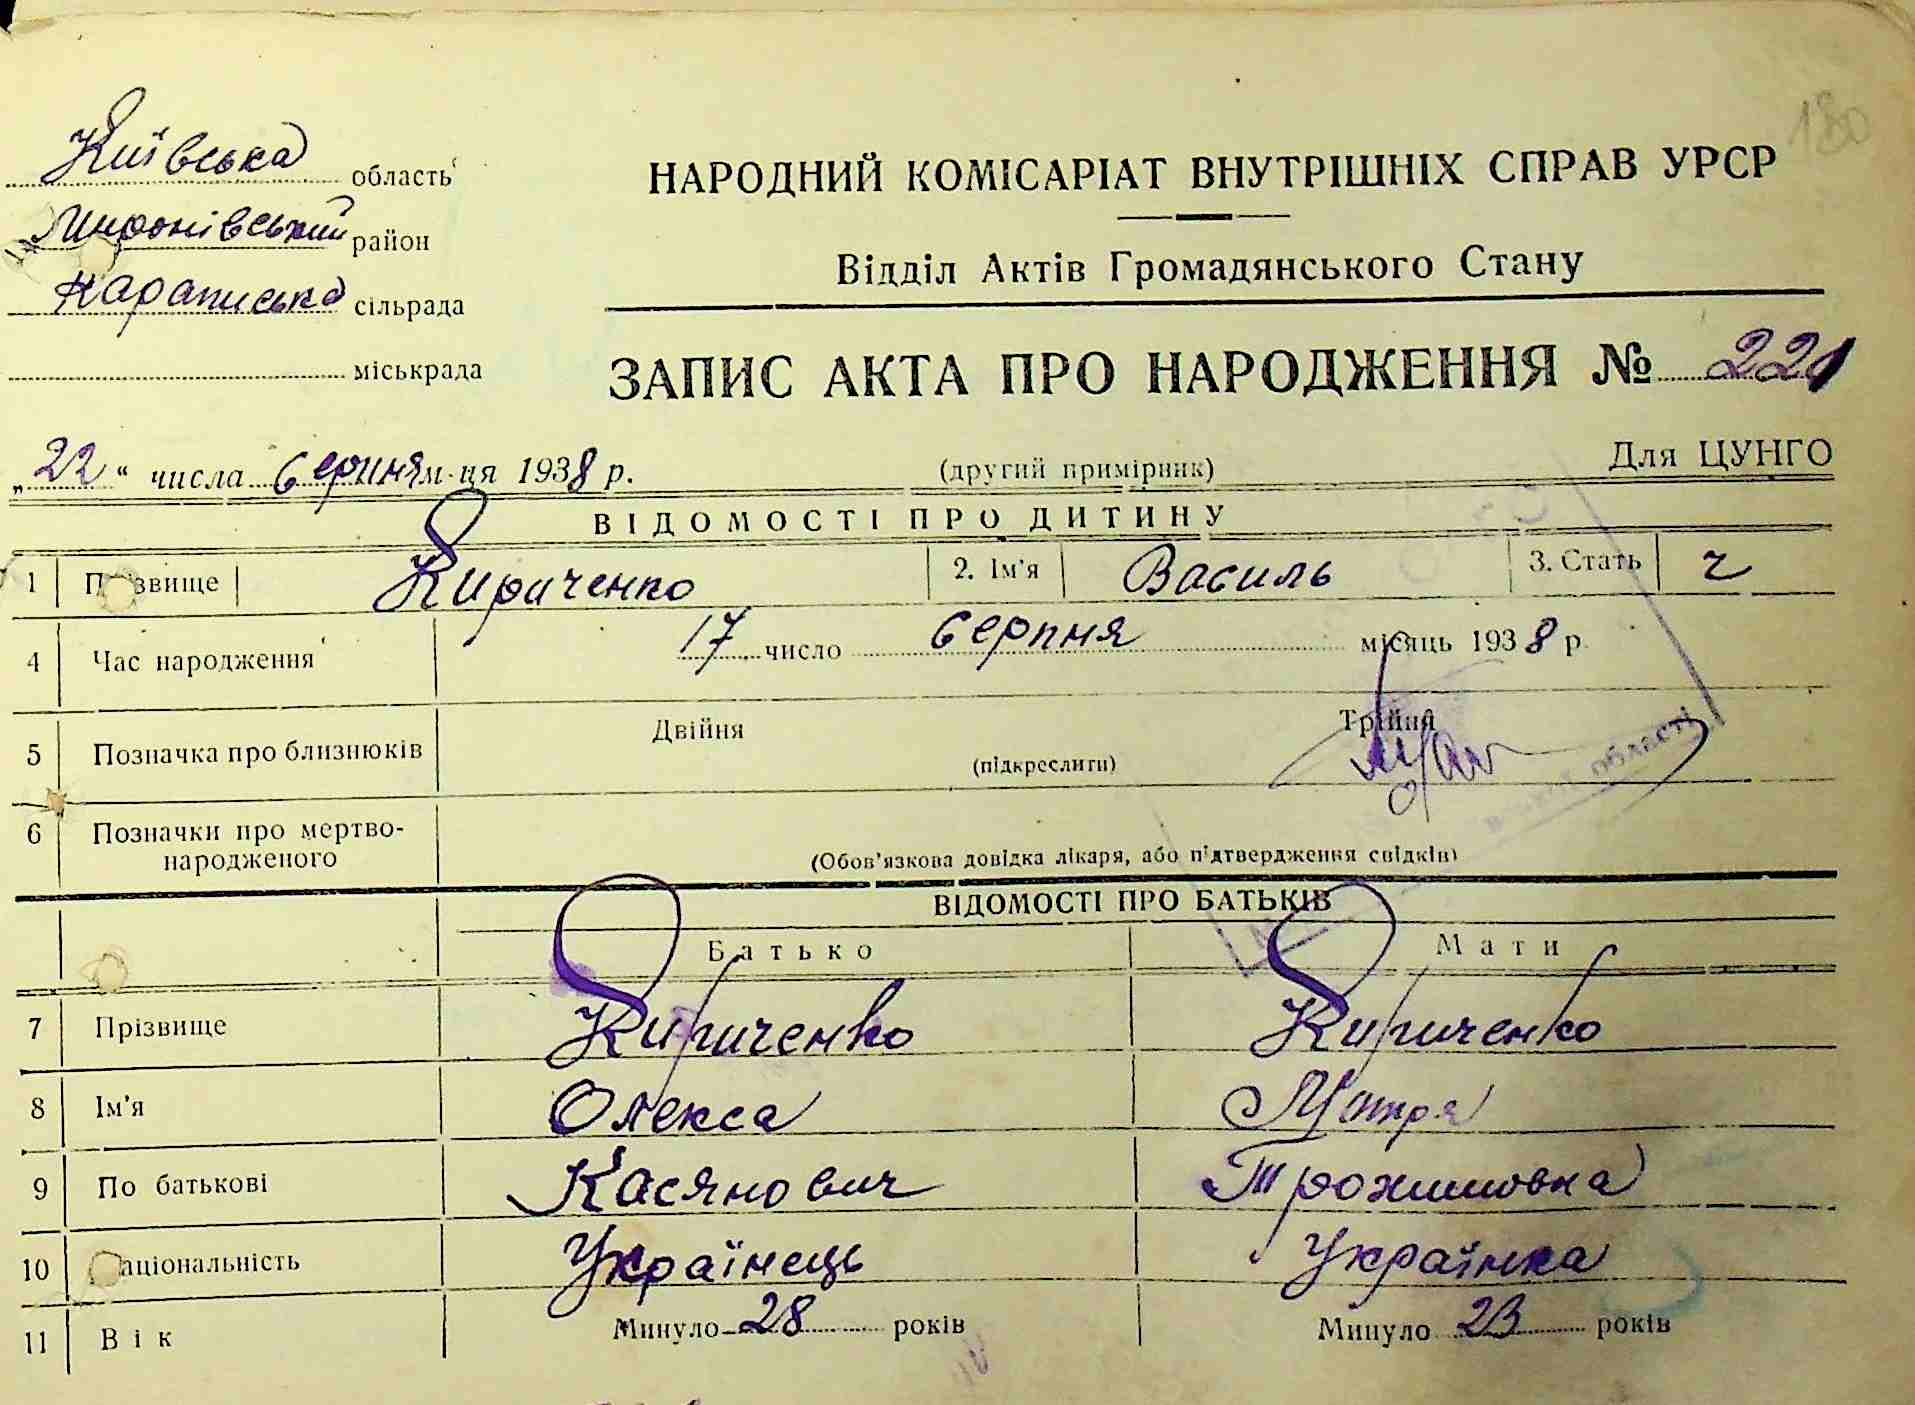 180
Київська область
Миронівський район
Караписька сільрада
міськрада
НАРОДНИЙ КОМІСАРІАТ ВНУТРІШНІХ СПРАВ УРСР
Відділ Актів Громадянського Стану
ЗАПИС АКТА ПРО НАРОДЖЕННЯ № 221
„22“ числа Серпня м-ця 1938 р. (другий примірник) Для ЦУНГО
ВІДОМОСТІ ПРО ДИТИНУ
1 Прізвище Кириченко 2. Ім'я Василь 3. Стать ч
4 Час народження 17 число Серпня місяць 1938 р.
5 Позначка про близнюків Двійня Трійня
(підкреслити)
6 Позначки про мертво-
народженого
(Обов'язкова довідка лікаря, або підтвердження свідків)
області
ВІДОМОСТІ ПРО БАТЬКІВ
Батько Мати
7 Прізвище Кириченко Кириченко
8 Ім'я Олекса Мотря
9 По батькові Касянович Трохимовна
10 Національність Українець Українка
11 Вік Минуло 28 років Минуло 23 років